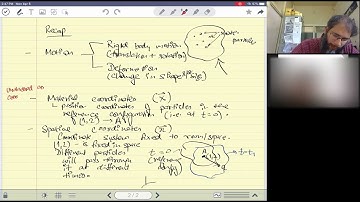 Recap
- Motion
Rigid body motion
(translation + rotation)
Deformation
(change in shape/size)
particle
- Material coordinates (X)
- position coordinates of particles in the
reference configuration (i.e. at t=0).
(1,2) → A
- Spatial coordinates (x)
Coordinate system fixed to room/space.
(1,2) - is fixed in space
Different particles
will pass through
it at different
times.
t=0
(reference
config)
A
t=t₁
2 / 2